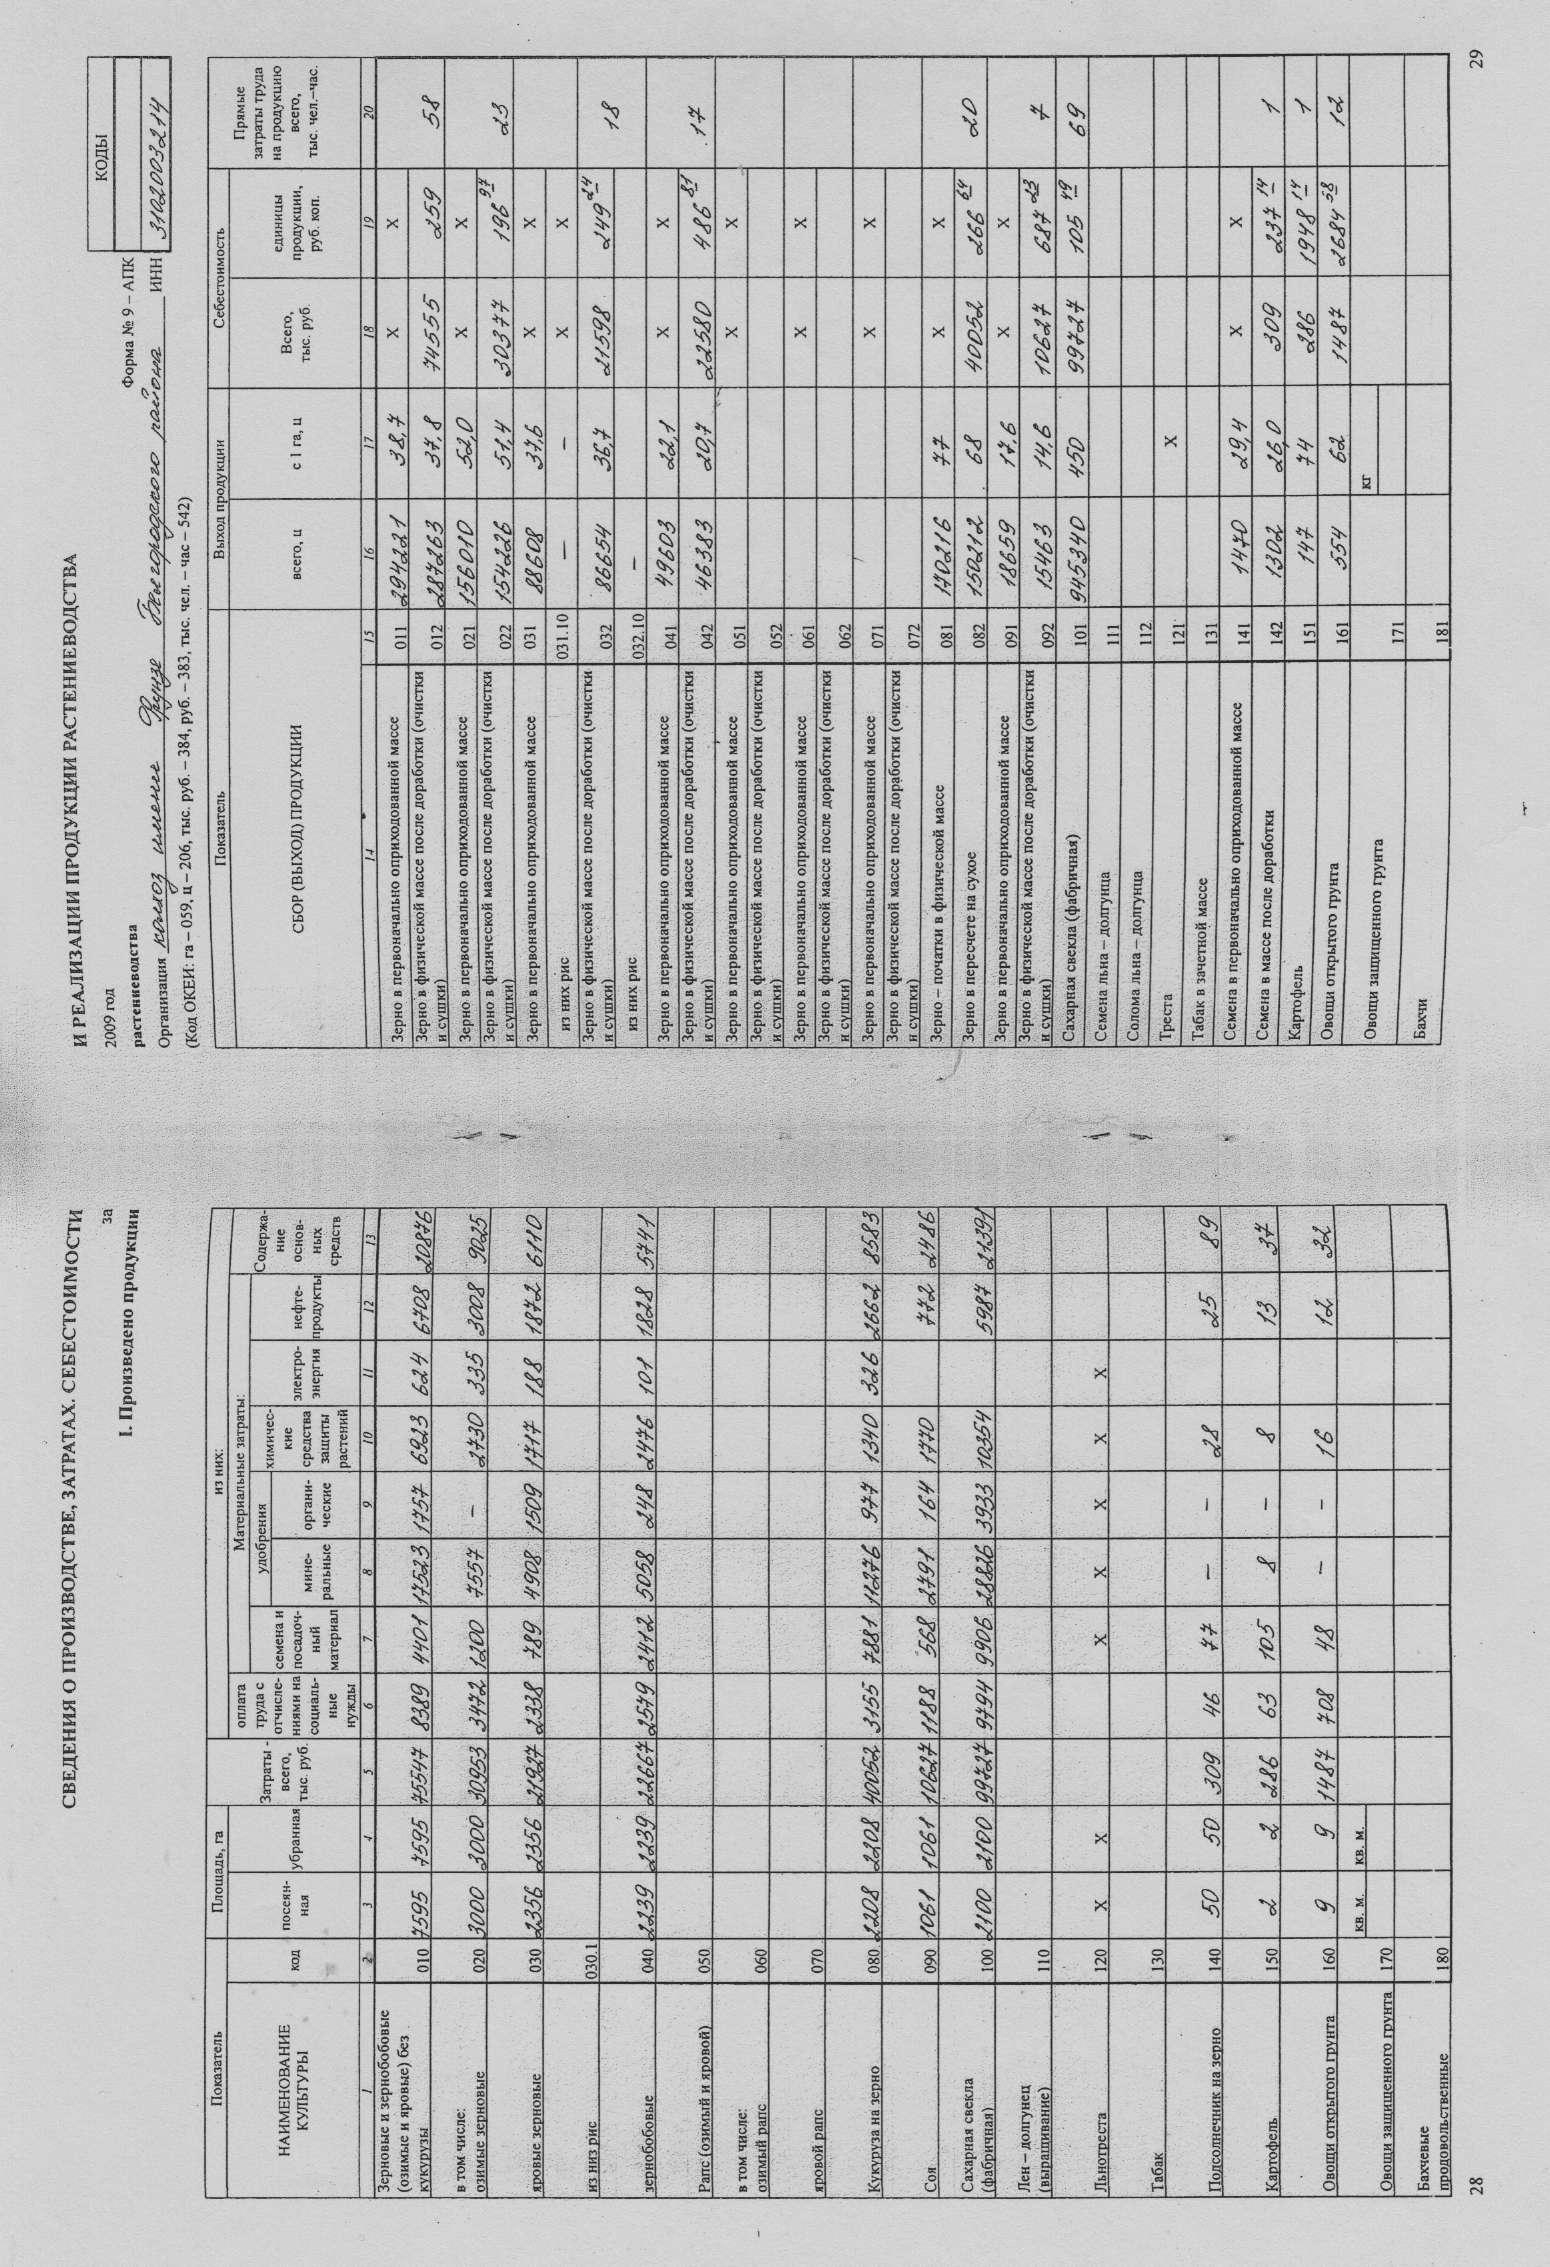 СВЕДЕНИЯ О ПРОИЗВОДСТВЕ, ЗАТРАТАХ. СЕБЕСТОИМОСТИ
за
I. Произведено продукции
Показатель | Площадь, га | Затраты - всего, тыс. руб. | из них:
НАИМЕНОВАНИЕ КУЛЬТУРЫ | код | посеян-ная | убранная | оплата труда с отчисле-ниями на социаль-ные нужды | Материальные затраты: | Содержа-ние основ-ных средств
семена и посадоч-ный материал | удобрения | химичес-кие средства защиты растений | электро-энергия | нефте-продукты
мине-ральные | органи-ческие
1 | 2 | 3 | 4 | 5 | 6 | 7 | 8 | 9 | 10 | 11 | 12 | 13
Зерновые и зернобобовые (озимые и яровые) без кукурузы | 010 | 7595 | 7595 | 75547 | 8389 | 4401 | 17523 | 1757 | 6923 | 624 | 6708 | 20876
в том числе:
озимые зерновые | 020 | 3000 | 3000 | 30953 | 3472 | 1200 | 7557 | – | 2730 | 335 | 3008 | 9025
яровые зерновые | 030 | 2356 | 2356 | 21927 | 2338 | 789 | 4908 | 1509 | 1717 | 188 | 1872 | 6110
из низ рис | 030.1
зернобобовые | 040 | 2239 | 2239 | 22667 | 2579 | 2412 | 5058 | 248 | 2476 | 101 | 1828 | 5741
Рапс (озимый и яровой) | 050
в том числе:
озимый рапс | 060
яровой рапс | 070
Кукуруза на зерно | 080 | 2208 | 2208 | 40052 | 3155 | 7881 | 11276 | 977 | 1340 | 326 | 2662 | 8583
Соя | 090 | 1061 | 1061 | 10627 | 1188 | 568 | 2791 | 164 | 1770 | 772 | 2486
Сахарная свекла (фабричная) | 100 | 2100 | 2100 | 99727 | 9794 | 9906 | 28826 | 3933 | 10354 | 5987 | 21391
Лен – долгунец (выращивание) | 110
Льнотреста | 120 | X | X | X | X | X | X | X
Табак | 130
Подсолнечник на зерно | 140 | 50 | 50 | 309 | 46 | 77 | – | – | 28 | 25 | 89
Картофель | 150 | 2 | 2 | 286 | 63 | 105 | 8 | – | 8 | 13 | 37
Овощи открытого грунта | 160 | 9 | 9 | 1487 | 708 | 48 | – | – | 16 | 12 | 32
Овощи защищенного грунта | 170 | кв. м. | кв. м.
Бахчевые продовольственные | 180
28
И РЕАЛИЗАЦИИ ПРОДУКЦИИ РАСТЕНИЕВОДСТВА
2009 год
КОДЫ
растениеводства
Форма № 9 – АПК
Организация колхоз имени Фрунзе Белгородского района ИНН 3102003214
(Код ОКЕИ: га – 059, ц – 206, тыс. руб. – 384, руб. – 383, тыс. чел. – час – 542)
Показатель | Выход продукции | Себестоимость | Прямые затраты труда на продукцию всего, тыс. чел.–час.
СБОР (ВЫХОД) ПРОДУКЦИИ | всего, ц | с 1 га, ц | Всего, тыс. руб. | единицы продукции, руб. коп.
14 | 15 | 16 | 17 | 18 | 19 | 20
Зерно в первоначально оприходованной массе | 011 | 294221 | 38,7 | X | X
Зерно в физической массе после доработки (очистки и сушки) | 012 | 287263 | 37,8 | 74555 | 259 | 58
Зерно в первоначально оприходованной массе | 021 | 156010 | 52,0 | X | X
Зерно в физической массе после доработки (очистки и сушки) | 022 | 154226 | 51,4 | 30377 | 196 97 | 23
Зерно в первоначально оприходованной массе | 031 | 88608 | 37,6 | X | X
из них рис | 031.10 | – | – | X | X
Зерно в физической массе после доработки (очистки и сушки) | 032 | 86654 | 36,7 | 21598 | 249 24 | 18
из них рис | 032.10 | –
Зерно в первоначально оприходованной массе | 041 | 49603 | 22,1 | X | X
Зерно в физической массе после доработки (очистки и сушки) | 042 | 46383 | 20,7 | 22580 | 486 81 | 17
Зерно в первоначально оприходованной массе | 051 | X | X
Зерно в физической массе после доработки (очистки и сушки) | 052
Зерно в первоначально оприходованной массе | 061 | X | X
Зерно в физической массе после доработки (очистки и сушки) | 062
Зерно в первоначально оприходованной массе | 071 | X | X
Зерно в физической массе после доработки (очистки и сушки) | 072
Зерно – початки в физической массе | 081 | 170216 | 77 | X | X
Зерно в пересчете на сухое | 082 | 150212 | 68 | 40052 | 266 64 | 20
Зерно в первоначально оприходованной массе | 091 | 18659 | 17,6 | X | X
Зерно в физической массе после доработки (очистки и сушки) | 092 | 15463 | 14,6 | 10627 | 687 23 | 7
Сахарная свекла (фабричная) | 101 | 945340 | 450 | 99727 | 105 49 | 69
Семена льна – долгунца | 111
Солома льна – долгунца | 112
Треста | 121 | X
Табак в зачетной массе | 131
Семена в первоначально оприходованной массе | 141 | 1470 | 29,4 | X | X
Семена в массе после доработки | 142 | 1302 | 26,0 | 309 | 237 14 | 1
Картофель | 151 | 147 | 74 | 286 | 1948 14 | 1
Овощи открытого грунта | 161 | 554 | 62 | 1487 | 2684 38 | 12
Овощи защищенного грунта | 171 | кг
Бахчи | 181
29